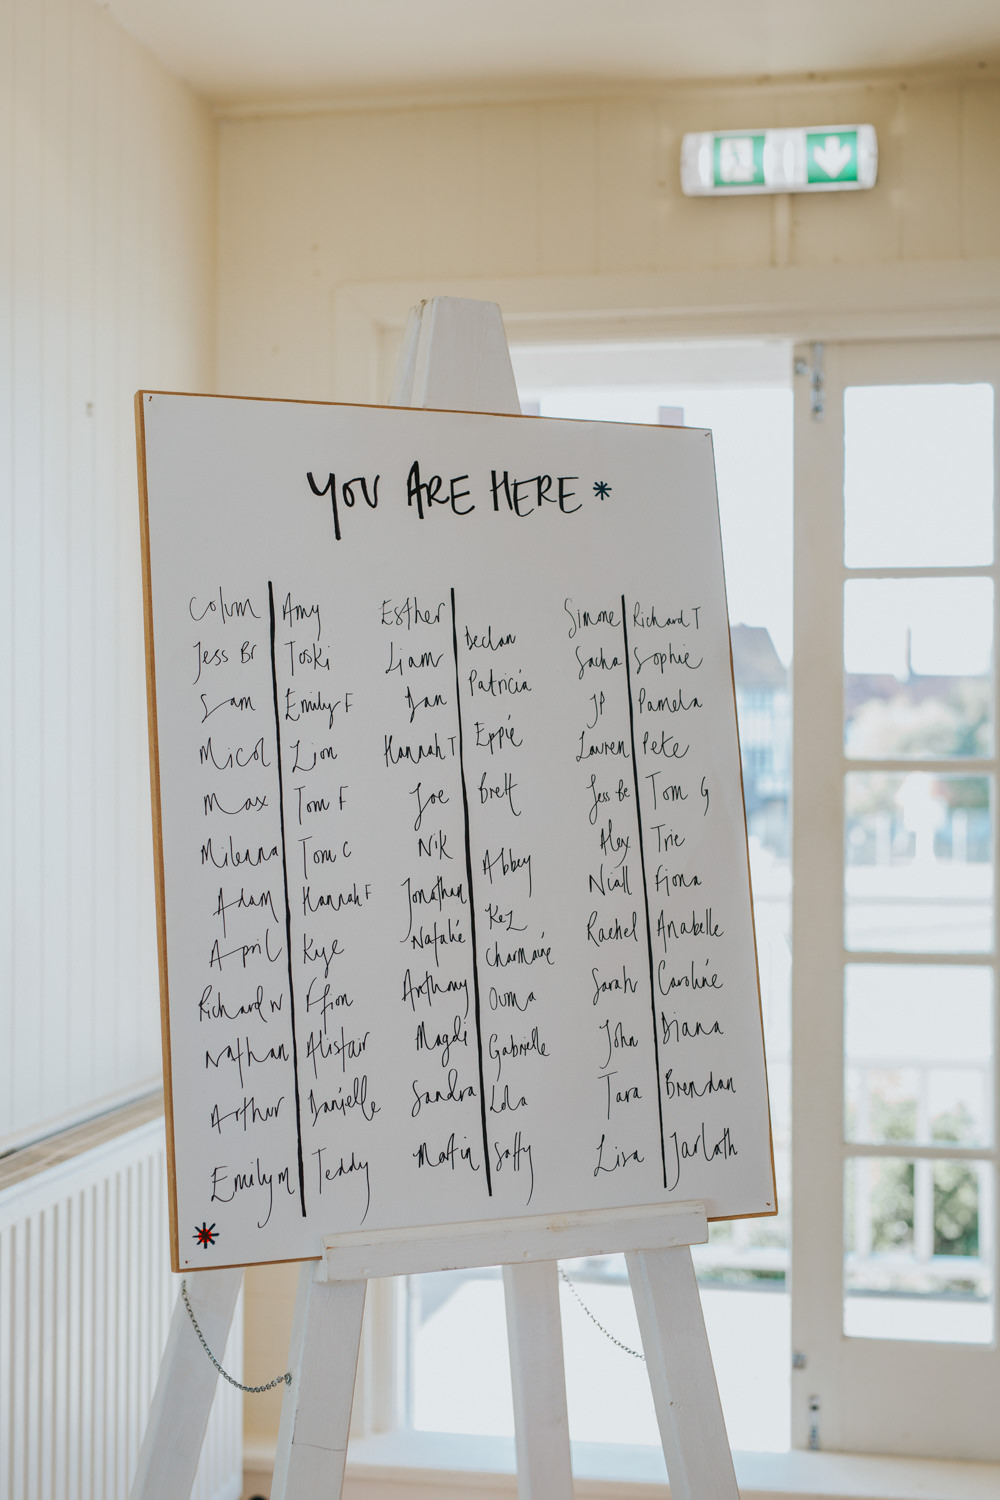 YOU ARE HERE*
Colum
Jess Br
Sam
Micol
Max
Milenna
Adam
April
Richard W
Nathan
Arthur
Emily M
Amy
Toski
Emily F
Lion
Tom F
Tom C
Hannah F
Kye
Ffion
Alistair
Danielle
Teddy
Esther
Liam
Dan
Hannah T
Joe
Nik
Jonathan
Natalie
Anthony
Magdi
Sandra
Martin
Declan
Patricia
Eppie
Brett
Abbey
Kez
Charmaine
Ouma
Gabrielle
Lola
Saffy
Simone
Sacha
JP
Lauren
Jess Be
Alex
Niall
Rachel
Sarah
John
Tara
Lisa
Richard T
Sophie
Pamela
Pete
Tom G
Trie
Fiona
Anabelle
Caroline
Diana
Brendan
Jarlath
*